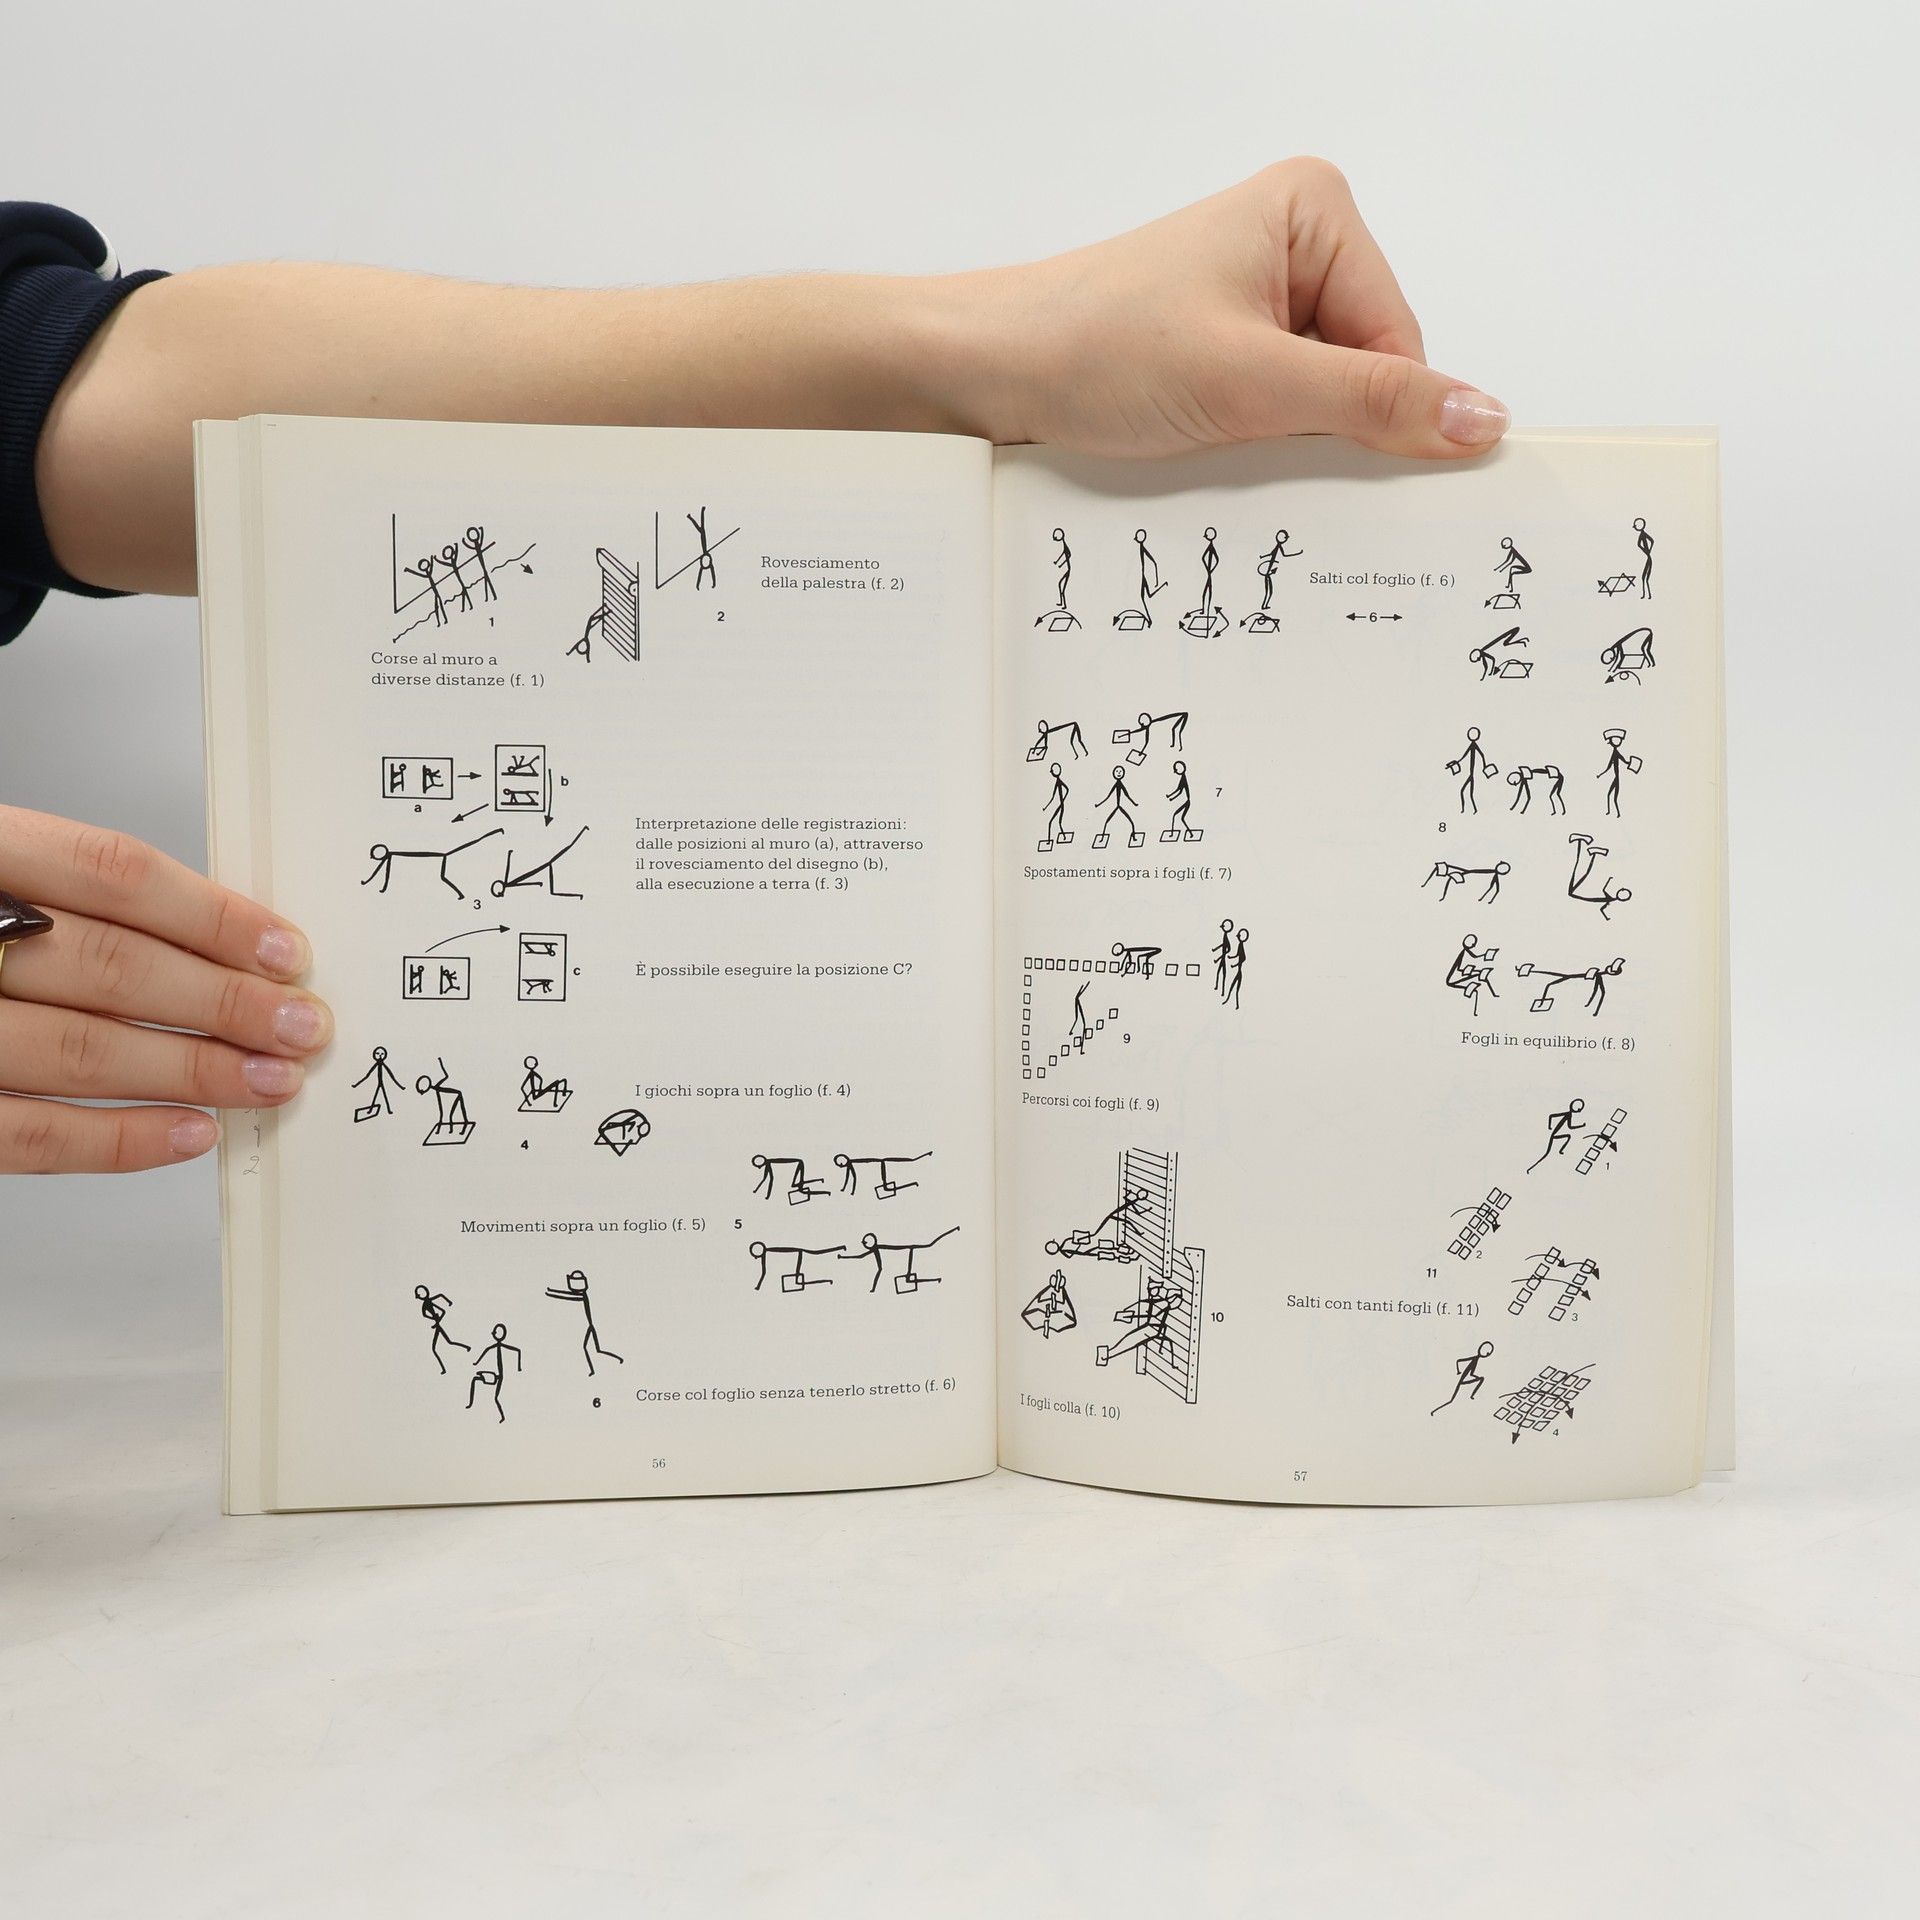 1
2
Rovesciamento
della palestra (f. 2)
Corse al muro a
diverse distanze (f. 1)
a
b
3
Interpretazione delle registrazioni:
dalle posizioni al muro (a), attraverso
il rovesciamento del disegno (b),
alla esecuzione a terra (f. 3)
c
È possibile eseguire la posizione C?
I giochi sopra un foglio (f. 4)
4
Movimenti sopra un foglio (f. 5)
5
6
Corse col foglio senza tenerlo stretto (f. 6)
56
Salti col foglio (f. 6)
6
7
Spostamenti sopra i fogli (f. 7)
8
Fogli in equilibrio (f. 8)
9
Percorsi coi fogli (f. 9)
10
I fogli colla (f. 10)
1
2
11
3
Salti con tanti fogli (f. 11)
4
57